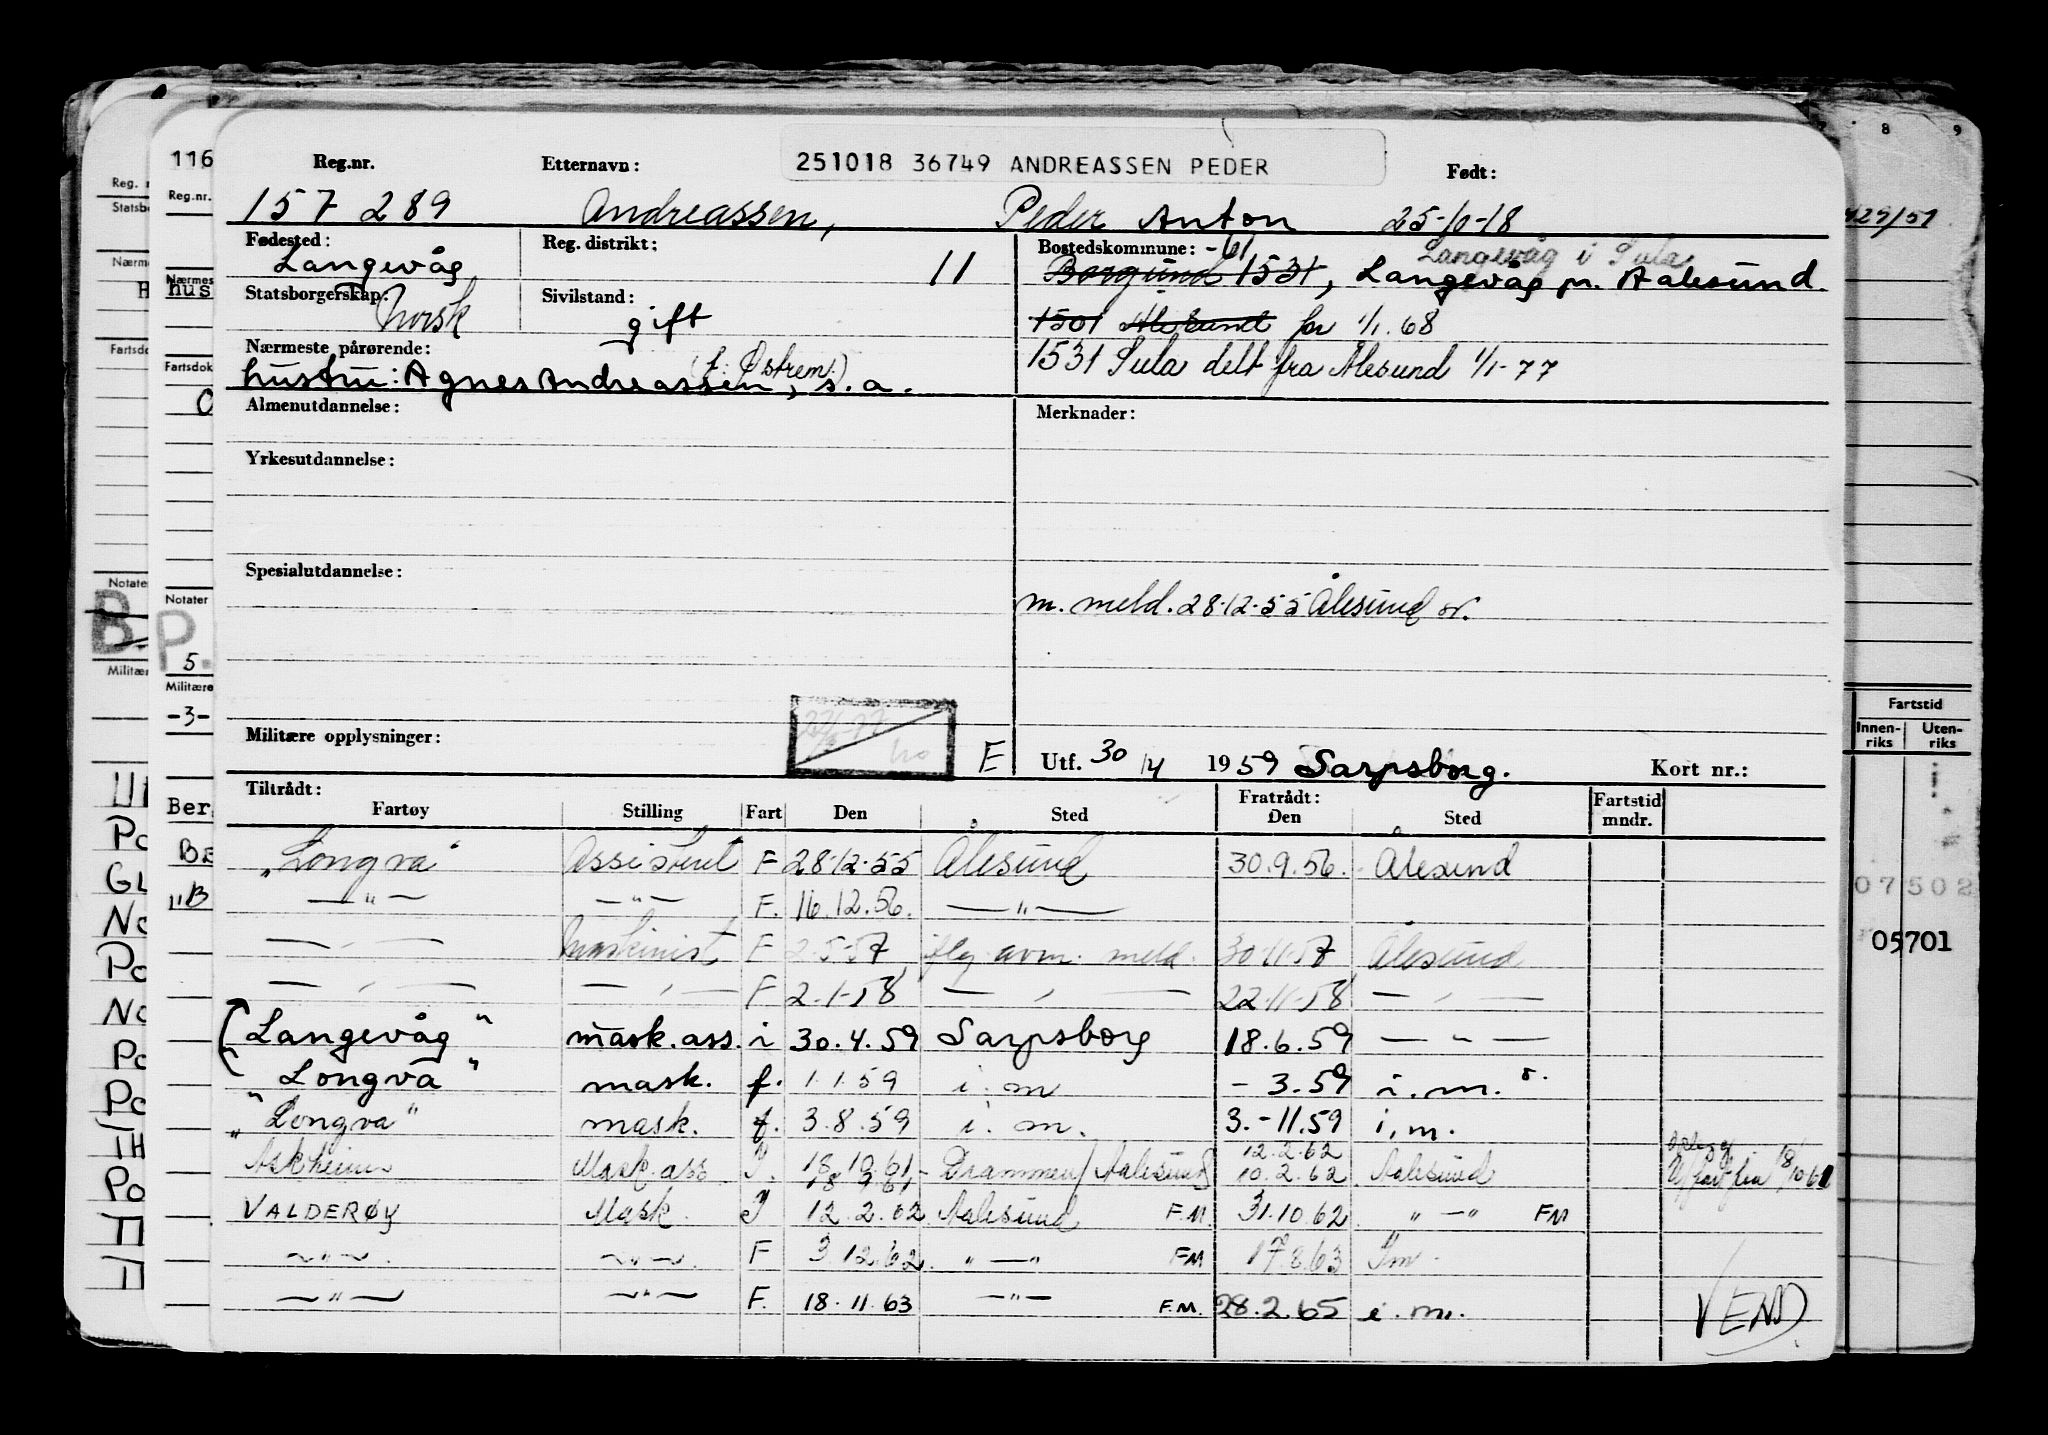 8 9
116 Reg.nr. Etternavn: 251018 36749 ANDREASSEN PEDER Født:
157 289 Andreassen, Peder Anton 25-10-18
Fødested: Reg. distrikt: Bostedskommune: -61 Langevåg i Sula
Langevåg 11 Borgund 1531, Langevåg pr. Aalesund.
Statsborgerskap: Sivilstand:
Norsk gift 1501 Ålesund før 1/1. 68
Nærmeste pårørende: (f. Østrem.) 1531 Sula delt fra Ålesund 1/1-77
hustru: Agnes Andreassen, s.a.
Almenutdannelse: Merknader:
Yrkesutdannelse:
Spesialutdannelse:
m. meld. 28-12-55 Ålesund
Militære opplysninger: E Utf. 30/4 1959 Sarpsborg. Kort nr.:
Tiltrådt: Fratrådt: Fartstid
Fartøy Stilling Fart Den Sted Den Sted mndr.
"Longva" Assistent F 28-12-55 Ålesund 30.9.56. Ålesund
—"— —"— F. 16.12.56. —"—
—"— Maskinist F 2-5-57 iflg. avm. meld. 30-11-57 Ålesund
—"— —"— F 2-1-58 —"— 22-11-58 —"—
"Langevåg" mask.ass. i 30.4.59 Sarpsborg 18.6.59 —"—
"Longva" mask. f. 1.1.59 i.m -3.59 i.m.
"Longva" mask. f. 3.8.59 i.m. 3.-11.59 i.m.
Askheim Mask.ass I. 18.10.61 Drammen/Aalesund 12.2.62 10.2.62 Aalesund
VALDERØY Mask. I 12.2.62 Aalesund F.M. 31.10.62 "—" FM
—"— —"— F 3.12.62. "—" FM 17.8.63 Im.
—"— —"— F. 18.11.63 —"— F.M. 28.2.65 i.m.
VEND
Reg.nr.
hus
Fartsdok
Notater
B. P.
5
Militære
-3-
Ber
Fartstid
Innenriks Utenriks
07502
05701